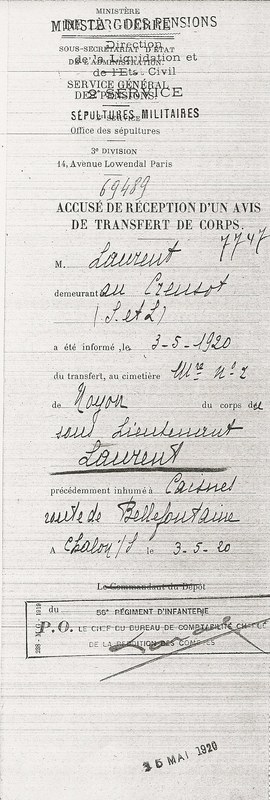 MINISTÈRE
MINISTÈRE DE LA GUERRE
DES PENSIONS
SOUS-SECRÉTARIAT D'ÉTAT
Direction
DE L'ADMINISTRATION
de la Liquidation et
de l'Etat Civil
SERVICE GÉNÉRAL
DES PENSIONS
2e SERVICE
SÉPULTURES MILITAIRES
Office des sépultures
3e DIVISION
14, Avenue Lowendal Paris
69489
ACCUSÉ DE RÉCEPTION D'UN AVIS
DE TRANSFERT DE CORPS.
7747
M. Laurent
demeurant au Creusot
(S. et L)
a été informé, le 3-5-1920
du transfert, au cimetière Mre No 2
de Noyon du corps du
sous Lieutenant
Laurent
précédemment inhumé à Caisnes
route de Bellefontaine
A Chalon s/S le 3-5-20
Le Commandant du Dépôt
du 56e RÉGIMENT D'INFANTERIE
P.O. LE CHEF DU BUREAU DE COMPTABILITÉ CHARGÉ
DE LA REDDITION DES COMPTES
15 MAI 1920